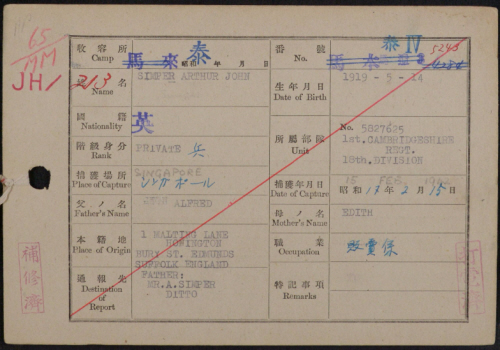 65
MM
JH/
收容所
Camp
馬來 泰
昭和 年 月 日
番號
泰IV
馬來
5248
名
Name
213
SIMPER ARTHUR JOHN
生年月日
Date of Birth
1919 - 5 - 14
國籍
Nationality
英
階級身分
Rank
PRIVATE 兵
所屬部隊
Unit
No. 5827625
1st.CAMBRIDGESHIRE
REGT.
18th.DIVISION
捕獲場所
Place of Capture
SINGAPORE
シンガポール
捕獲年月日
Date of Capture
15 FEB 1942
昭和 17年 2月 15日
父ノ名
Father's Name
ALFRED
母ノ名
Mother's Name
EDITH
本籍地
Place of Origin
1 MALTING LANE
HONINGTON
BURY ST. EDMUNDS
SUFFOLK ENGLAND
職業
Occupation
販賣係
通報先
Destination of Report
FATHER:
MR.A.SIMPER
DITTO
特記事項
Remarks
補修濟